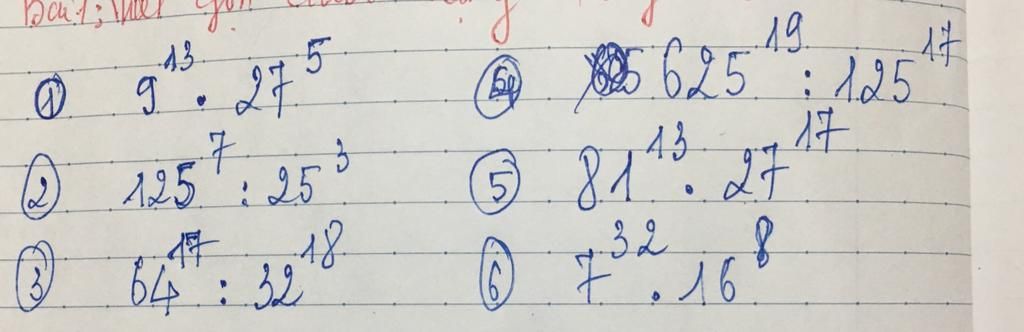 Bài 1:
① 9¹³ . 27⁵
② 125⁷ : 25³
③ 64¹⁷ : 32¹⁸
④ 625¹⁹ : 125¹⁷
⑤ 81¹³ . 27¹⁷
⑥ 7³² . 16⁸